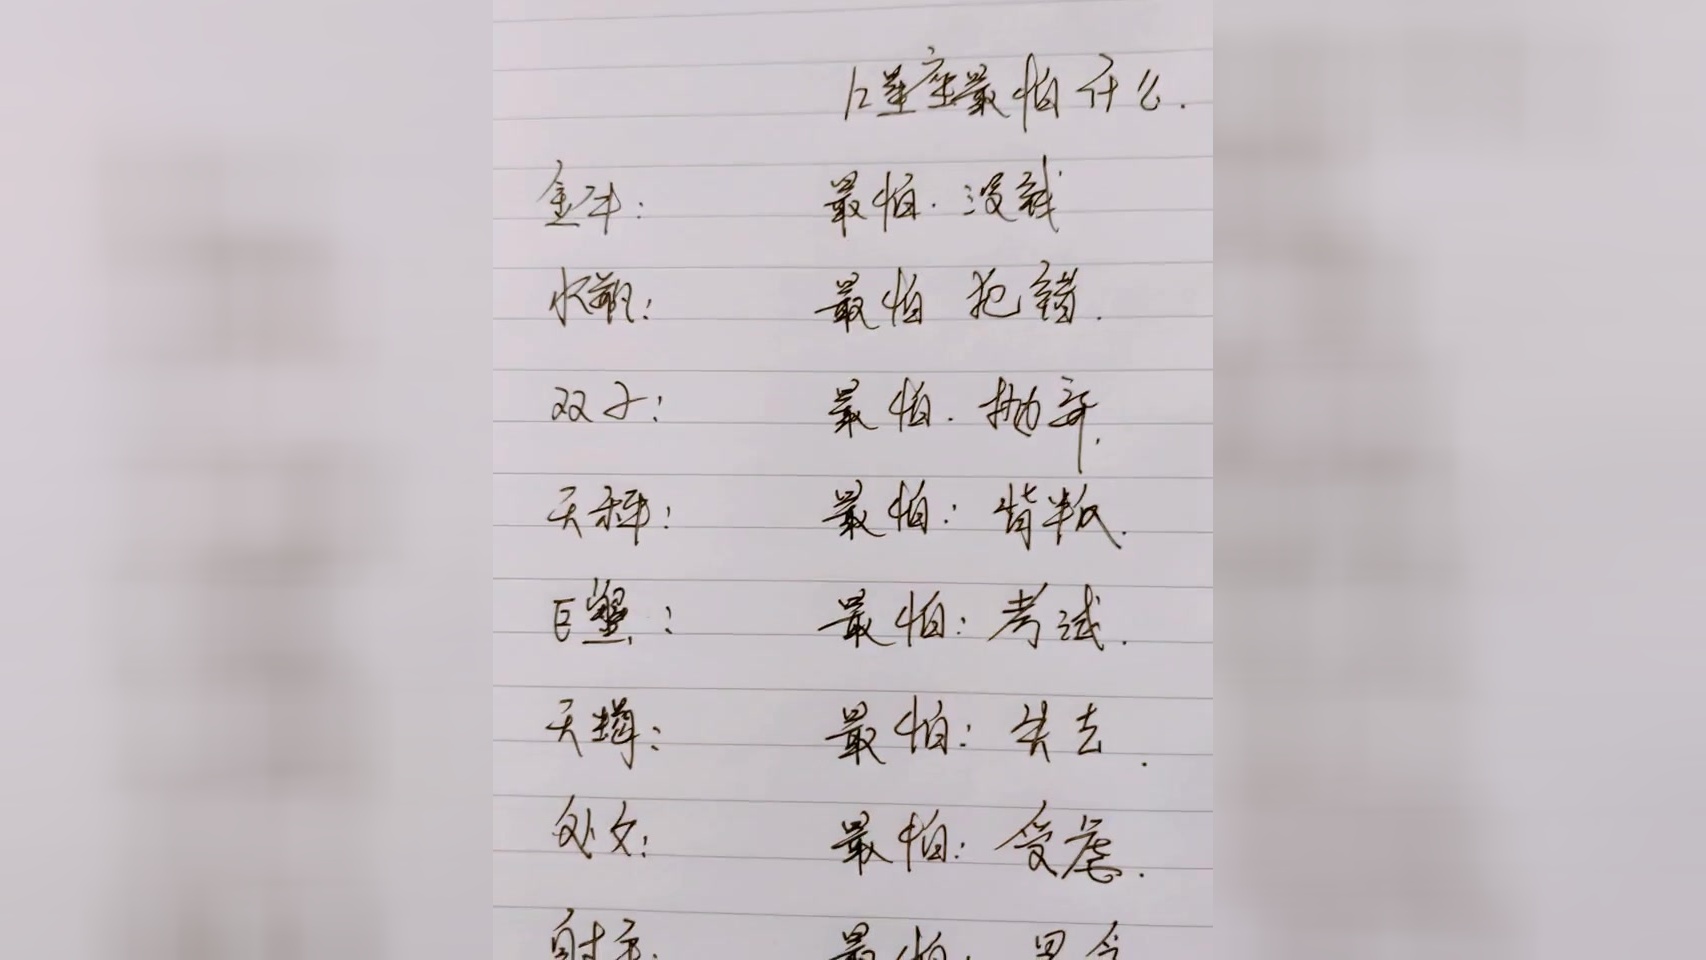 12星座最怕什么.
金牛: 最怕. 没钱
水瓶: 最怕 犯错.
双子: 最怕. 抛弃.
天秤: 最怕: 背叛.
巨蟹: 最怕: 考试.
天蝎: 最怕: 失去.
处女: 最怕: 受虐.
射手: 最怕: